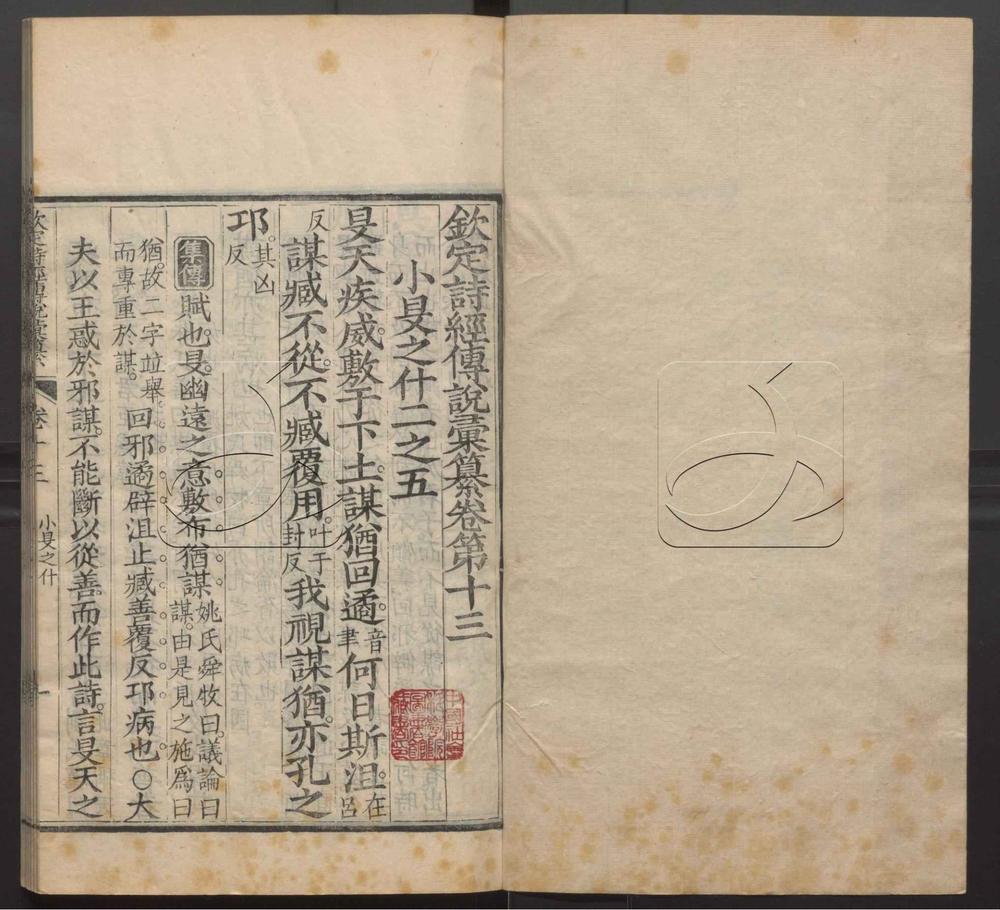 欽定詩經傳說彙纂卷第十三
小旻之什二之五
旻天疾威敷于下土謀猶回遹音聿何日斯沮在呂
反謀臧不從不臧覆用叶于封反我視謀猶亦孔之
邛其凶反
集傳賦也旻幽遠之意敷布猶謀姚氏舜牧曰議論曰謀由是見之施為曰
猶故二字竝舉而專重於謀回邪遹辟沮止臧善覆反邛病也○大
夫以王惑於邪謀不能斷以從善而作此詩言旻天之
欽定詩經傳說彙纂 卷十三 小旻之什 一